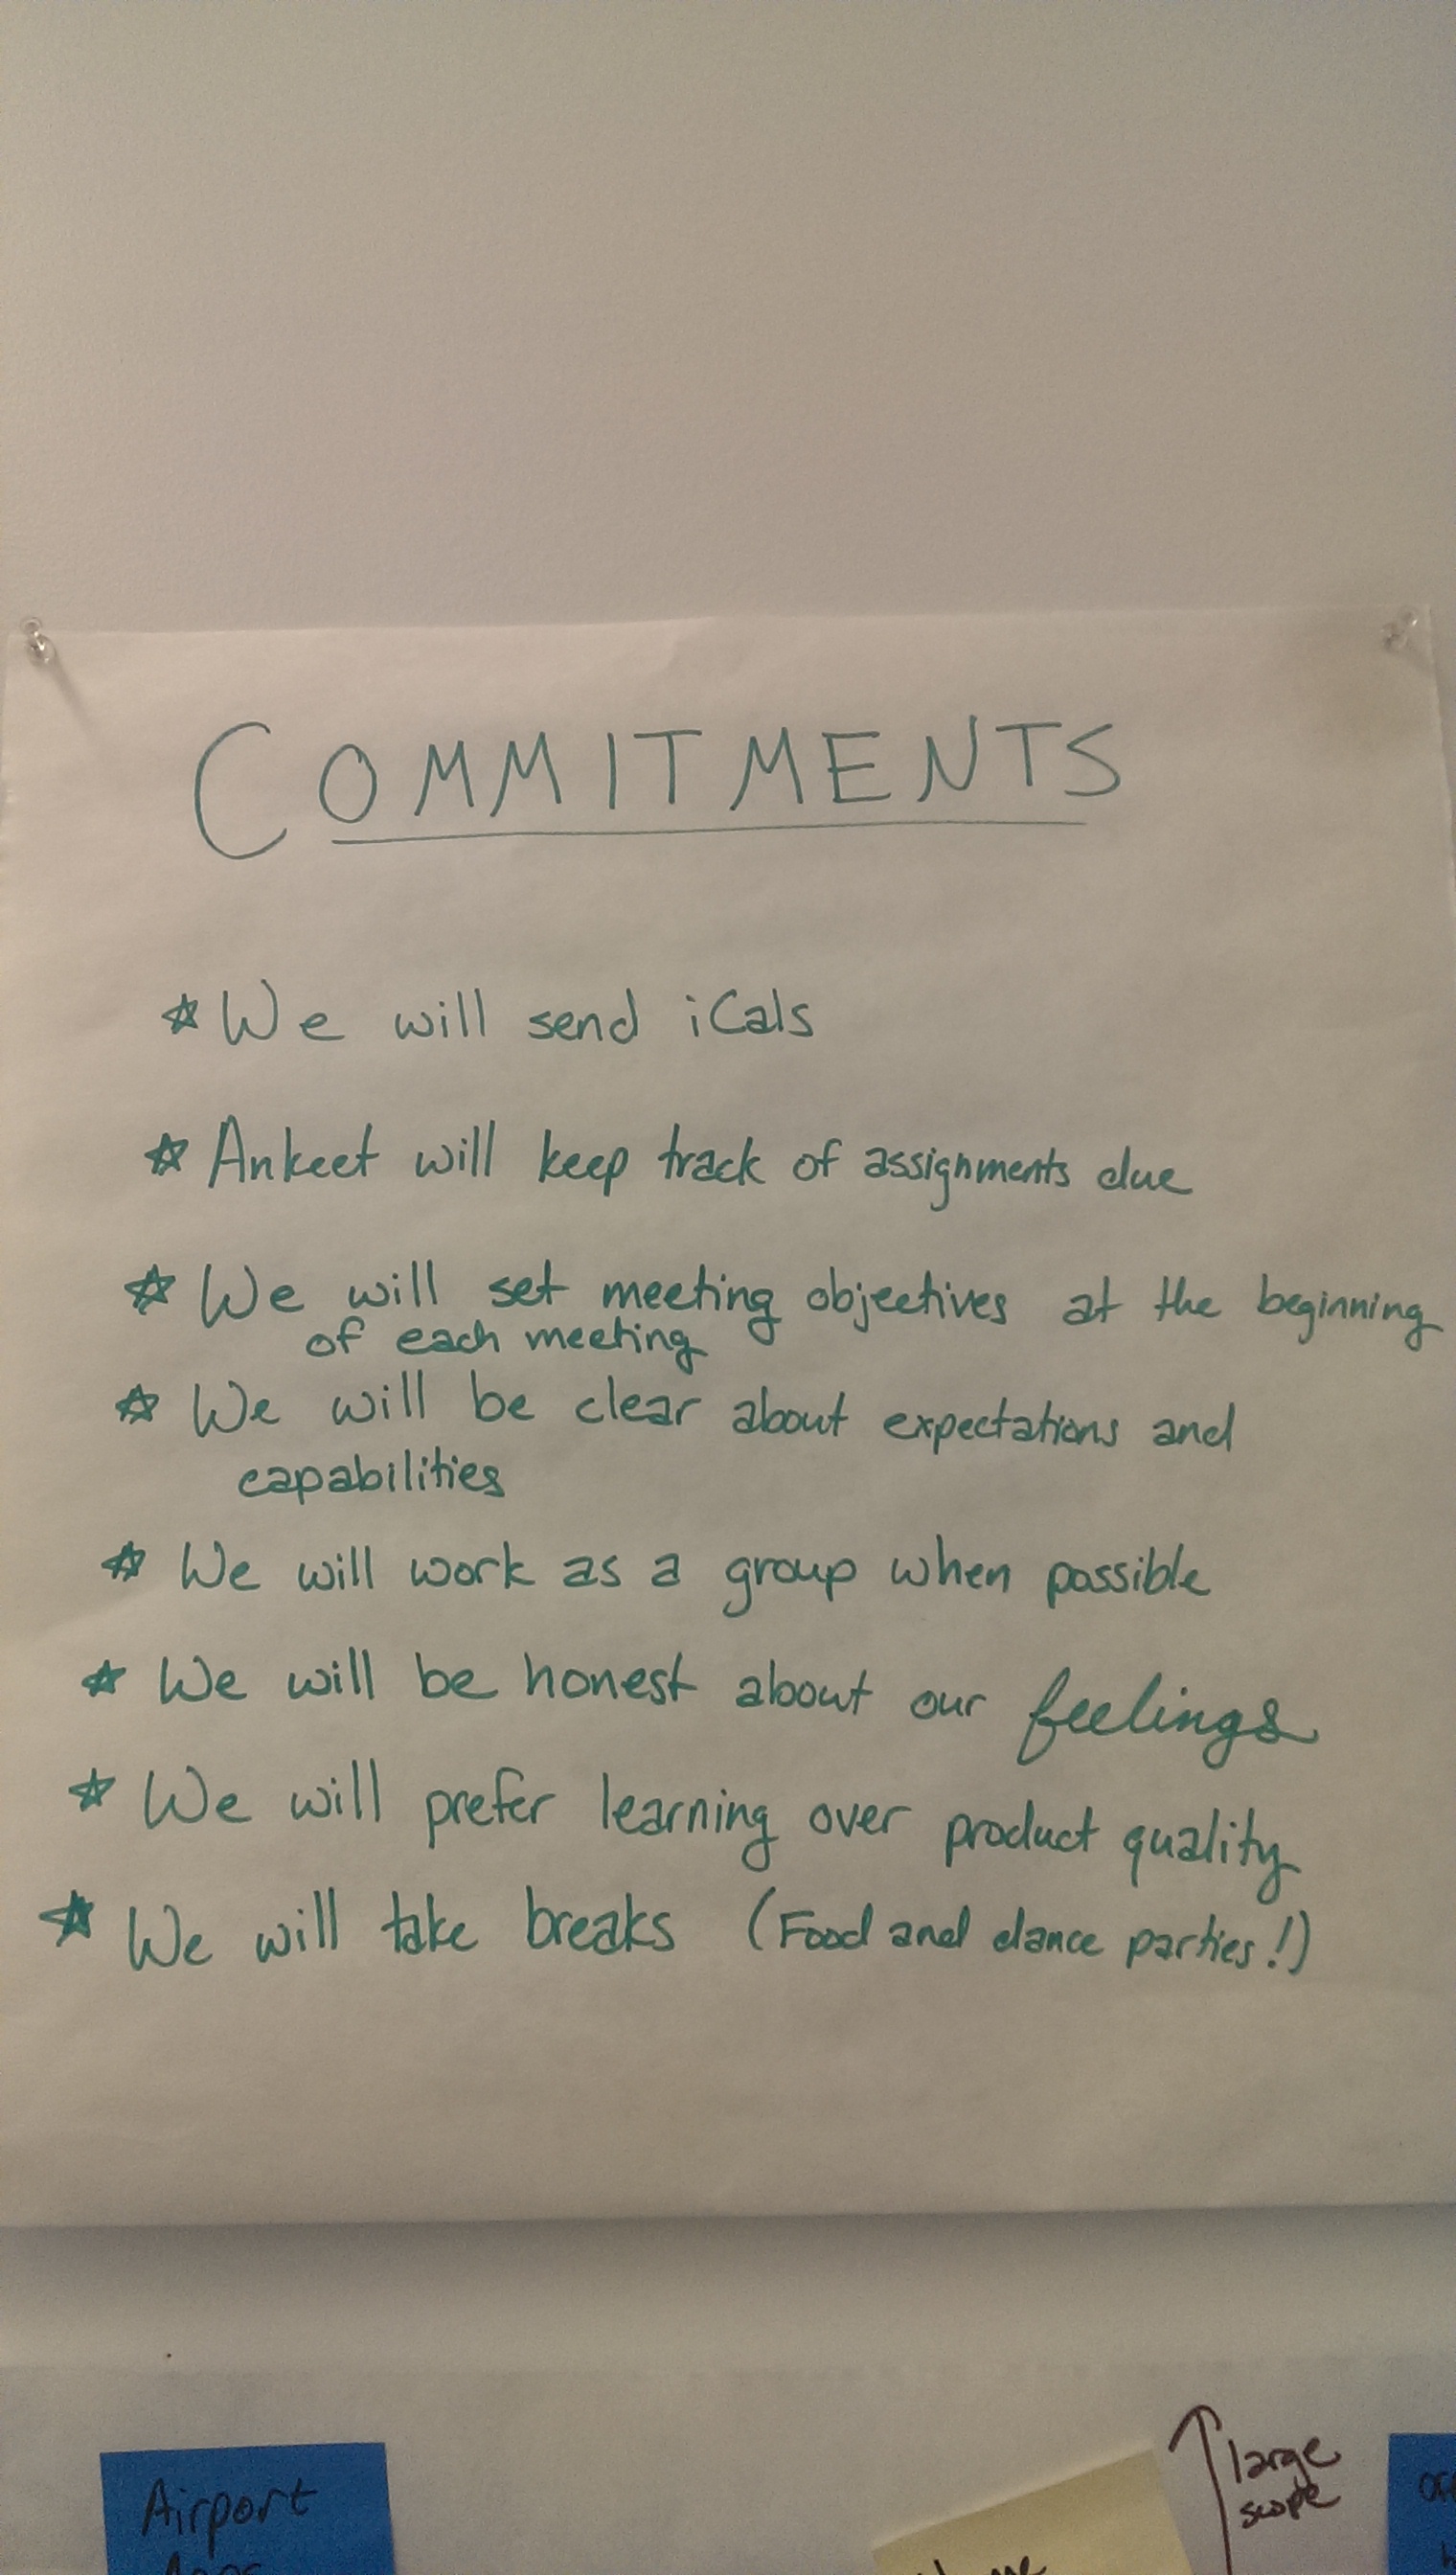 COMMITMENTS
☆ We will send iCals
☆ Ankeet will keep track of assignments due
☆ We will set meeting objectives at the beginning
of each meeting
☆ We will be clear about expectations and
capabilities
☆ We will work as a group when possible
☆ We will be honest about our feelings
☆ We will prefer learning over product quality
☆ We will take breaks (Food and dance parties!)
large
scope
Airport